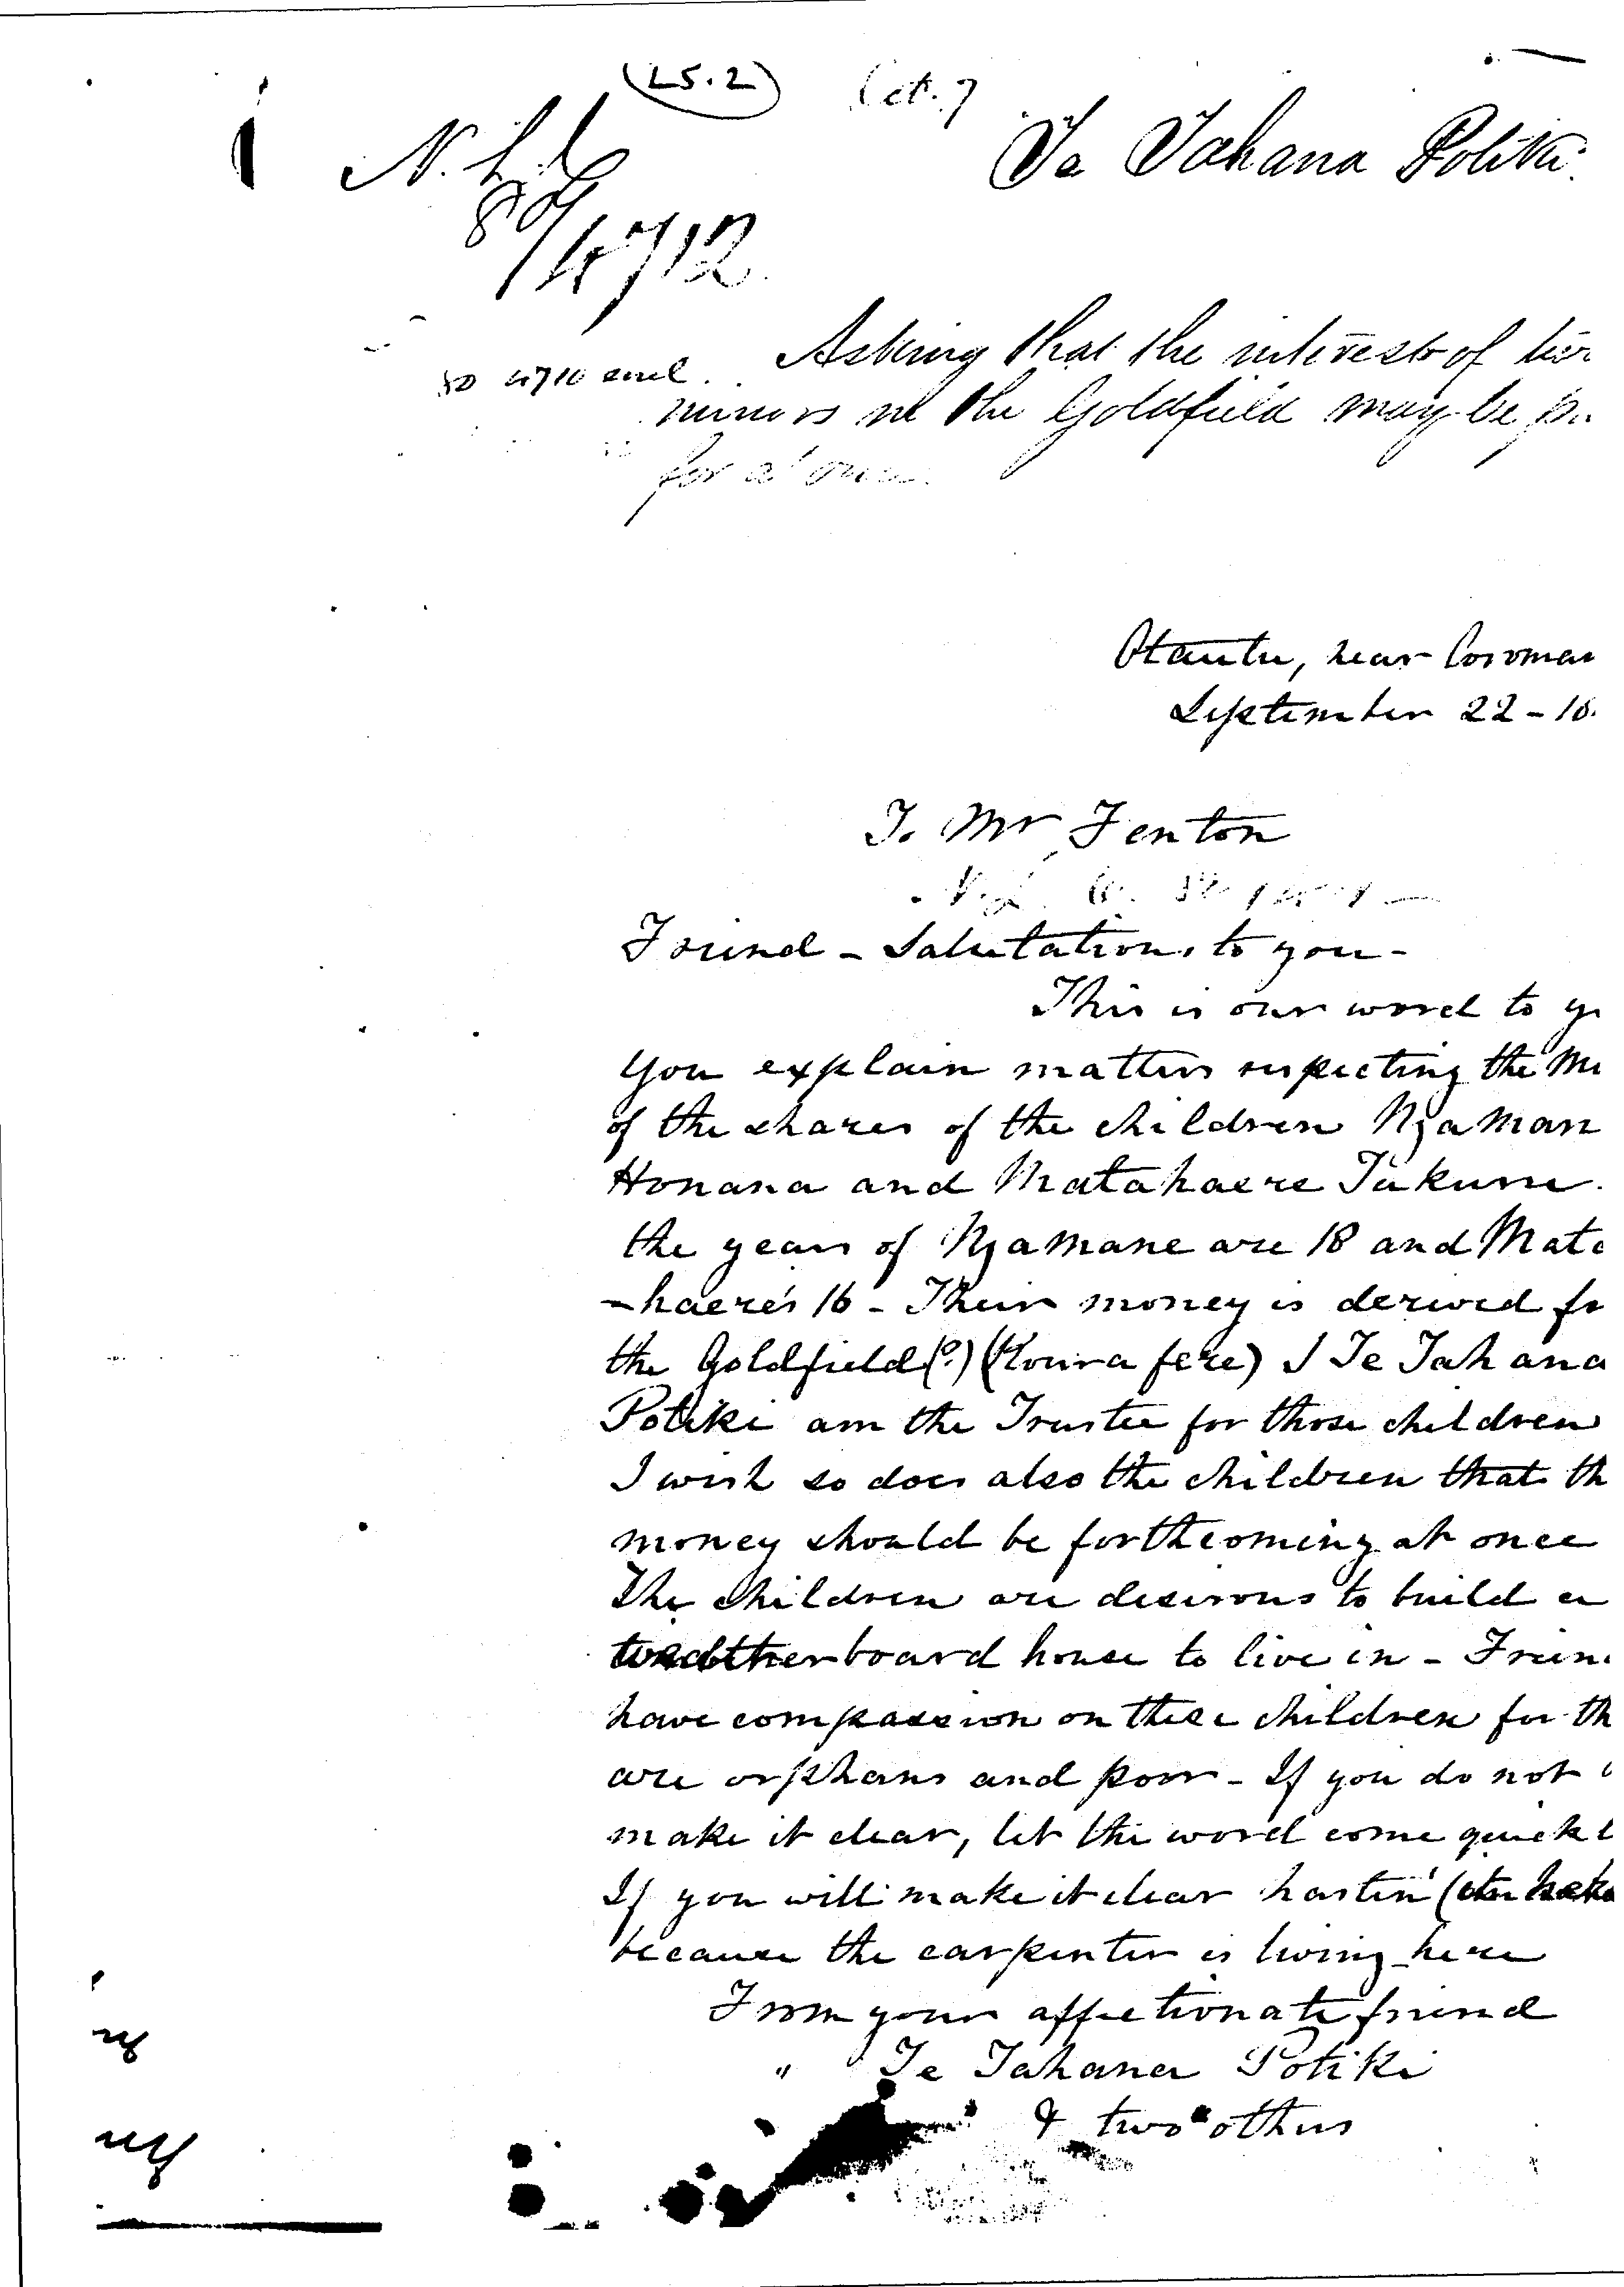 (LS.2)
Te Tahana Potiki.
N.L.
80/4712.
80 4710 encl.
Asking that the interests of
minors in the Goldfield may be
for at once.
Otautu, near
September 22 -
To Mr Fenton
Friend - Salutations to you -
This is our word to
You explain matters respecting the
of the shares of the children
Honana and Matahaere Tukua.
the years of Ngamane are 18 and Mata
-haere's 16 - Their money is derived
the Goldfield (?) (Koura fere) I Te Tahana
Potiki am the Trustee for those children
I wish so does also the children that
money should be forthcoming at once
The children are desirous to build a
weatherboard house to live in -
have compassion on these children for
are orphans and poor - If you do not
make it clear, let the word come
If you will make it clear hasten
because the carpenter is living here
From your affectionate friend
" Te Tahana Potiki
& two others